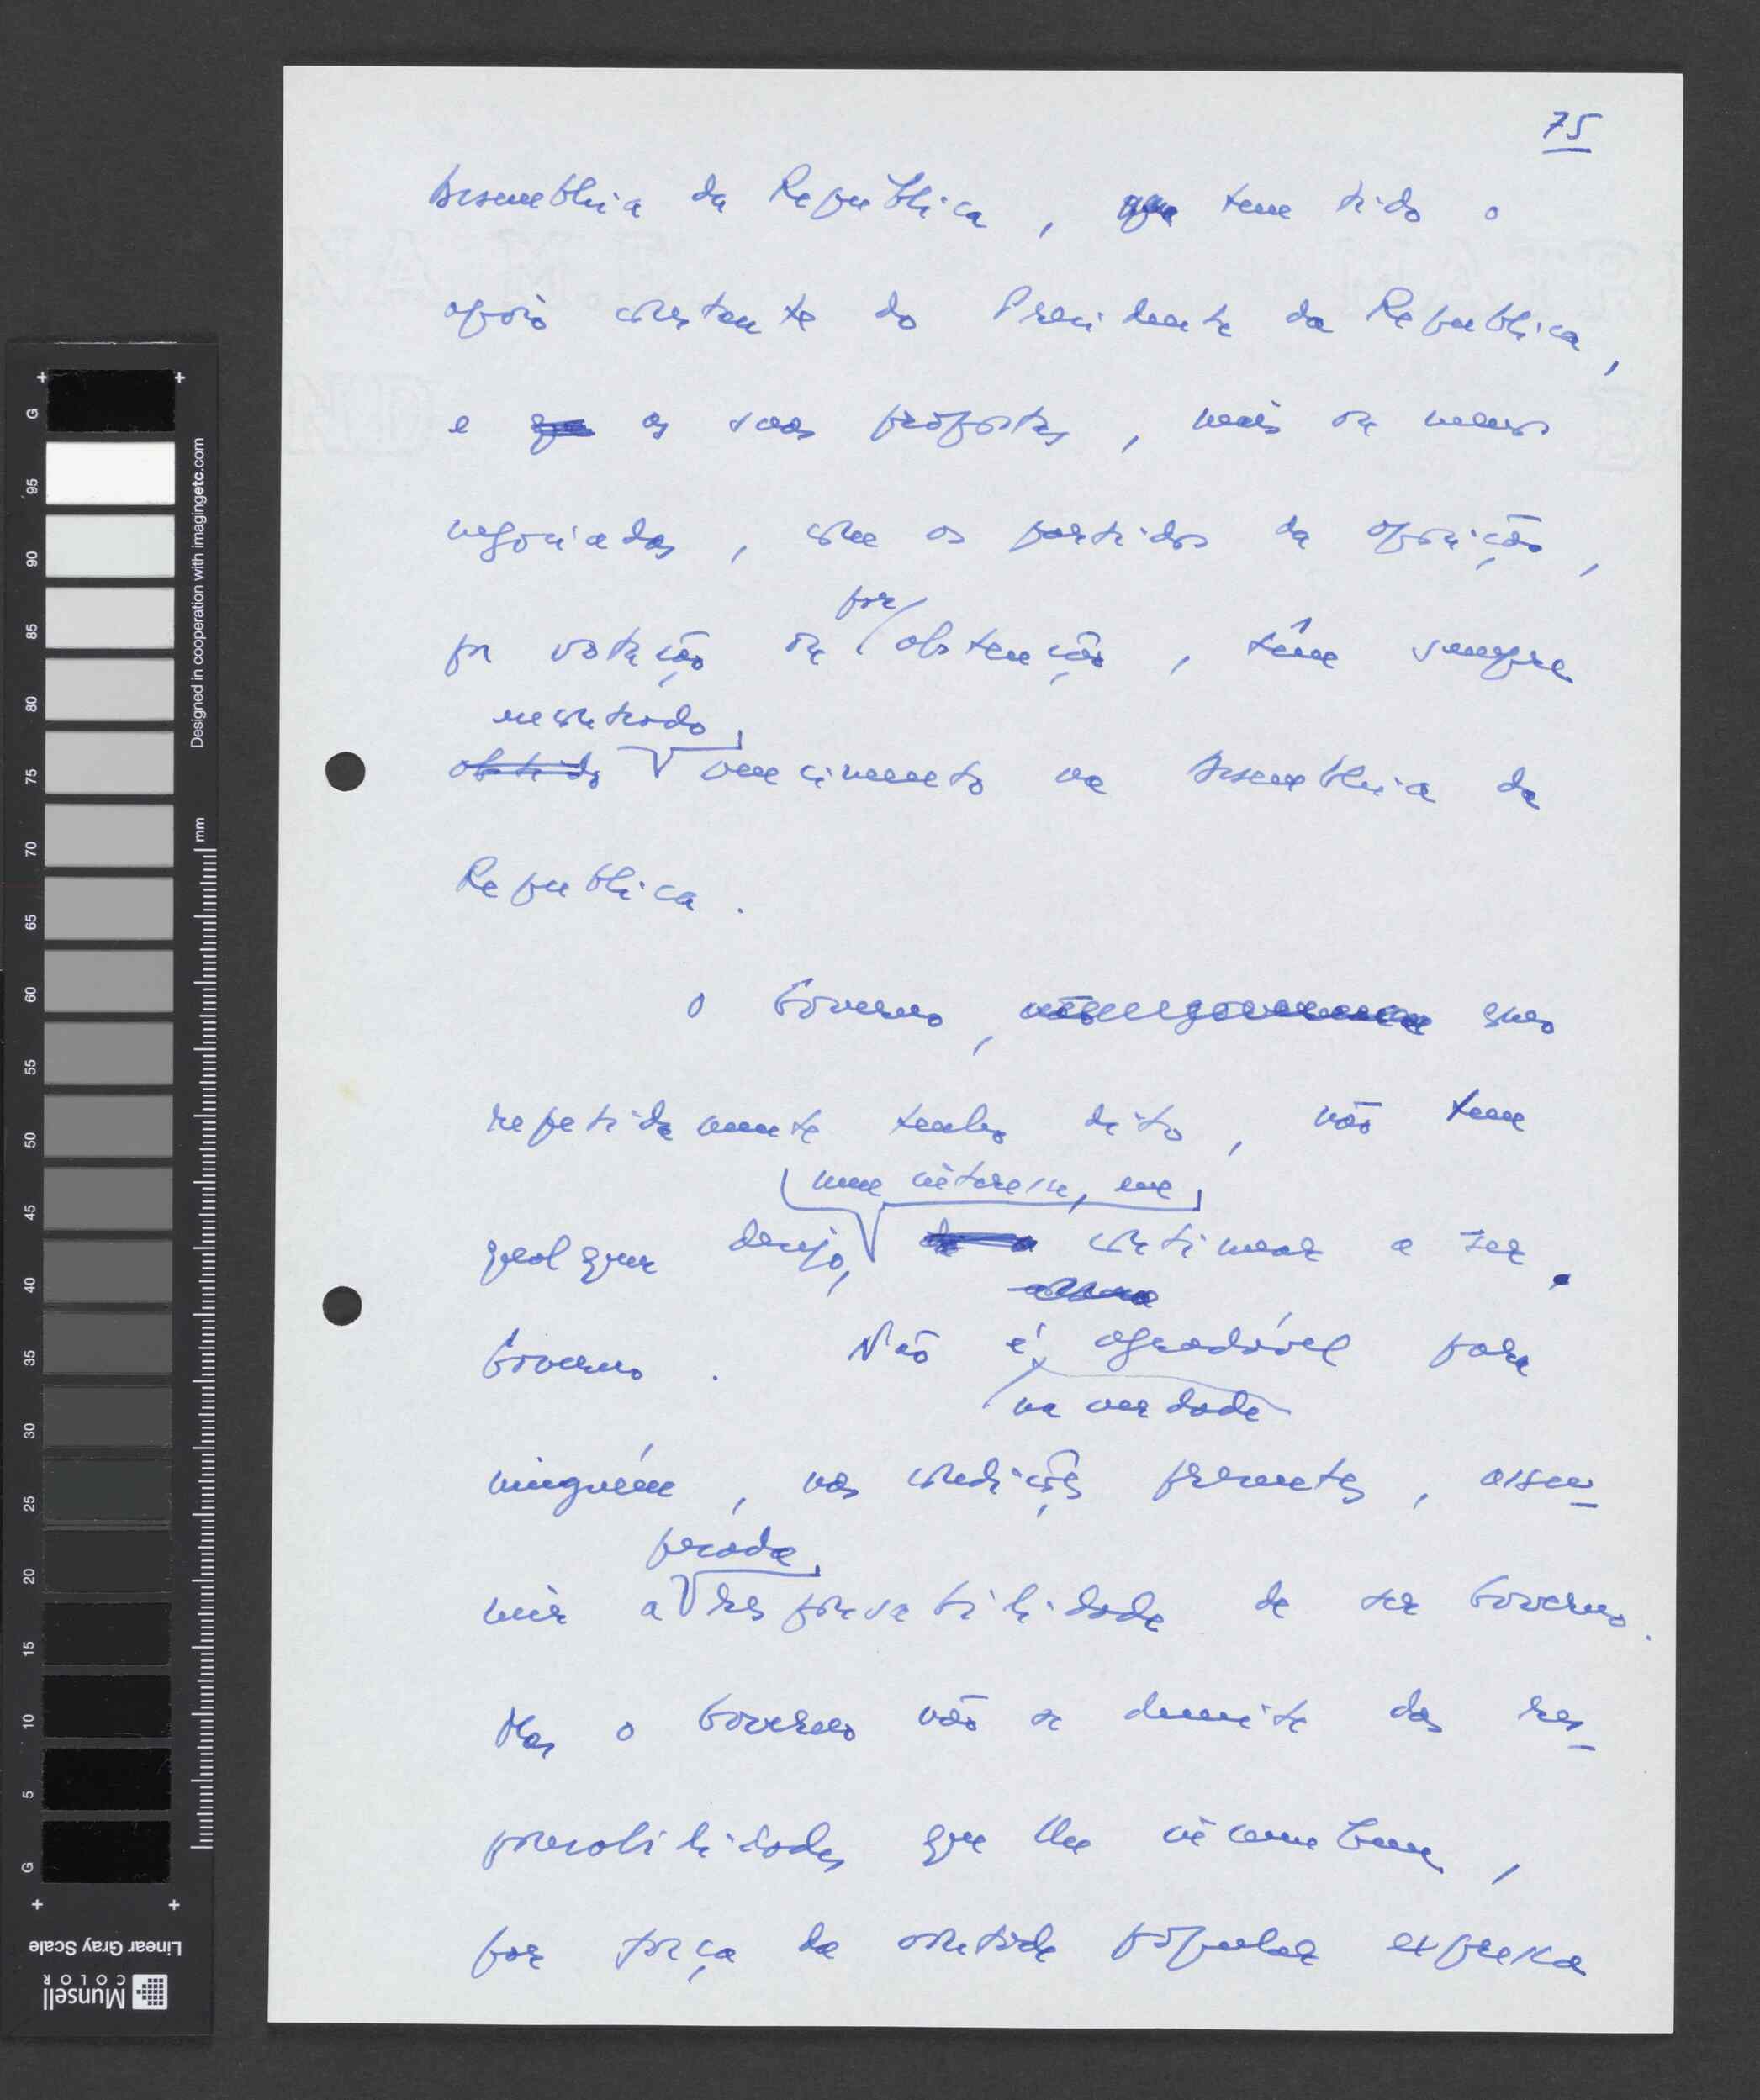 75
Assembleia da República, que tem tido o
apoio constante do Presidente da Republica,
e que as suas propostas, mais ou menos
negociadas, com os partidos da oposição,
por
por votação ou abstenção, têm sempre
encontrado
obtido vencimento na Assembleia da
Republica.
O Governo, como
repetidamente tenho dito, não tem
nem interesse, em
qualquer desejo, de continuar a ser
Governo. Não é agradável para
na verdade
ninguém, nas condições presentes, assu-
pesada
mir a responsabilidade de ser Governo.
Mas o Governo não se demite das res-
ponsabilidades que lhe incumbem,
por força da vontade popular expressa
G
95
90
85
80
75
70
65
60
55
50
45
40
35
30
25
20
15
10
5
G
mm
Designed in cooperation with imagingetc.com
Linear Gray Scale
Munsell
COLOR